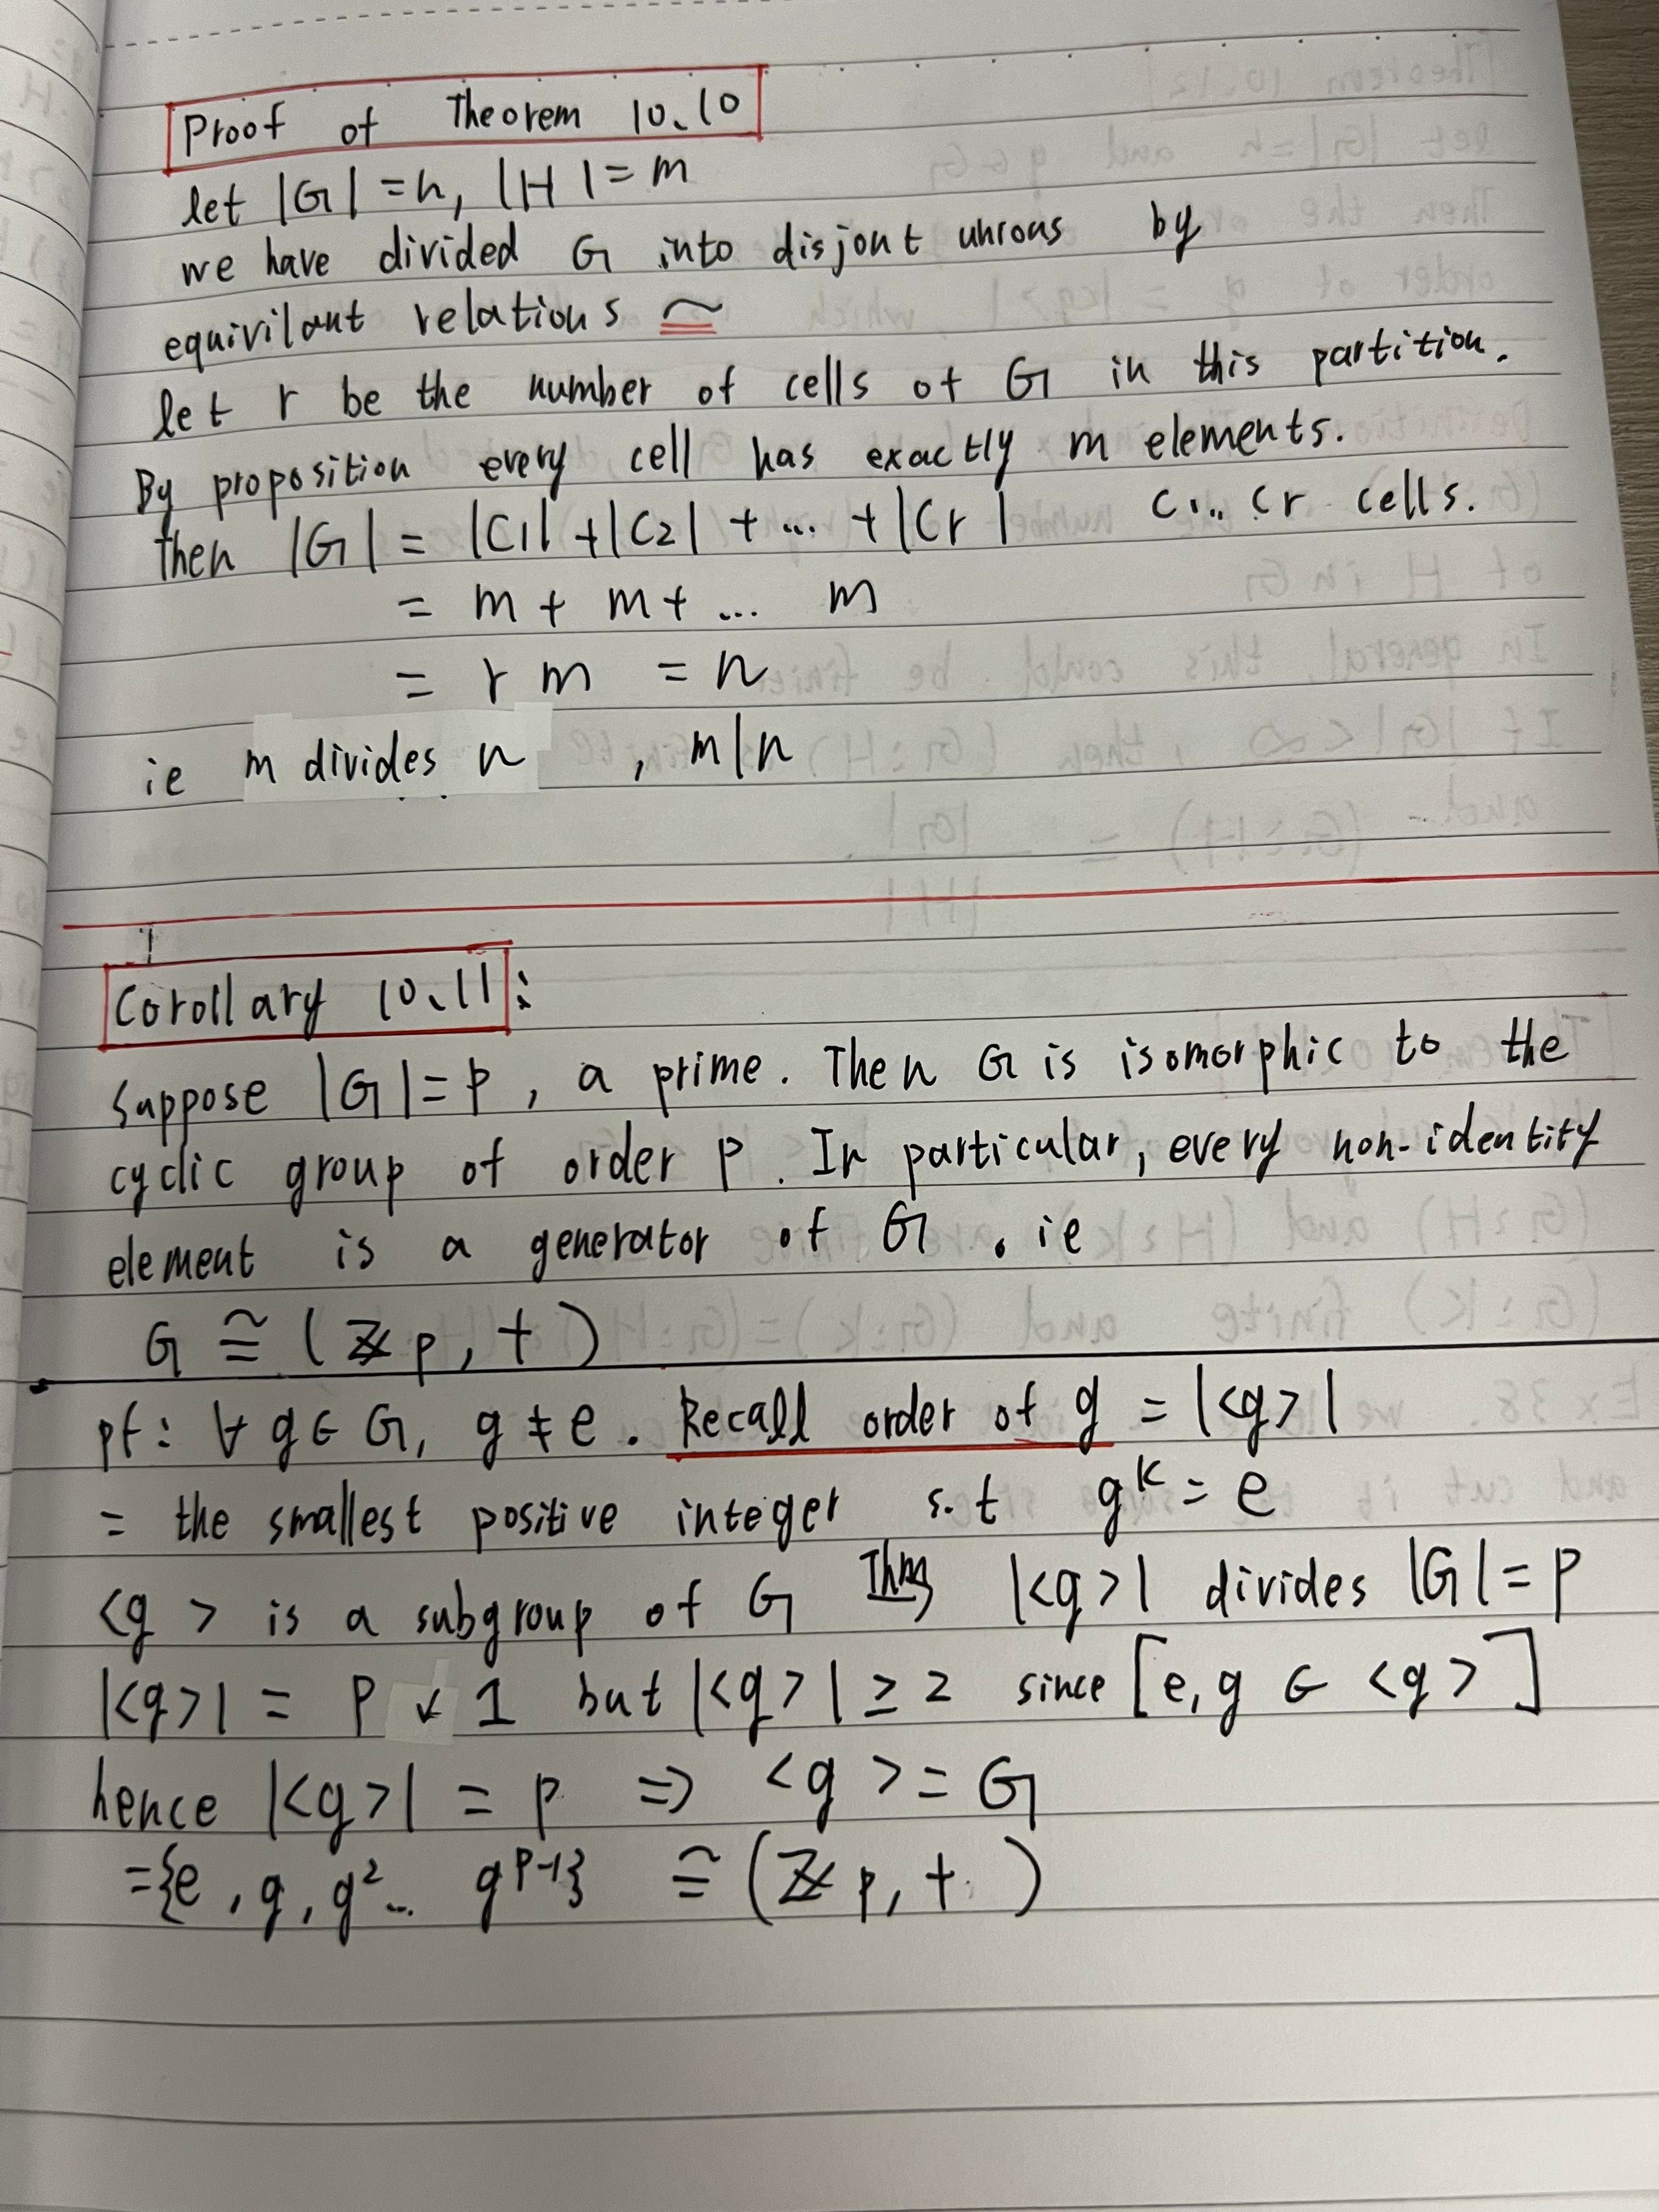 Proof of Theorem 10.10
let |G| = n, |H| = m
we have divided G into disjont unions by
equivilant relations ≃
let r be the number of cells of G in this partition.
By proposition every cell has exactly m elements.
then |G| = |C1| + |C2| + ... + |Cr| C1... Cr cells.
= m + m + ... m
= r m = n
ie m divides n , m|n
Corollary 10.11:
Suppose |G| = p, a prime. Then G is isomorphic to the
cyclic group of order p. In particular, every non-identity
element is a generator of G. ie
G ≅ (ℤp, +)
pf: ∀ g ∈ G, g ≠ e. Recall order of g = |<g>|
= the smallest positive integer s.t g^k = e
<g> is a subgroup of G |<g>| divides |G| = p
|<g>| = p 1 but |<g>| ≥ 2 since [e, g ∈ <g>]
hence |<g>| = p ⇒ <g> = G
={e, g, g²... g^p-1} ≅ (ℤp, +)